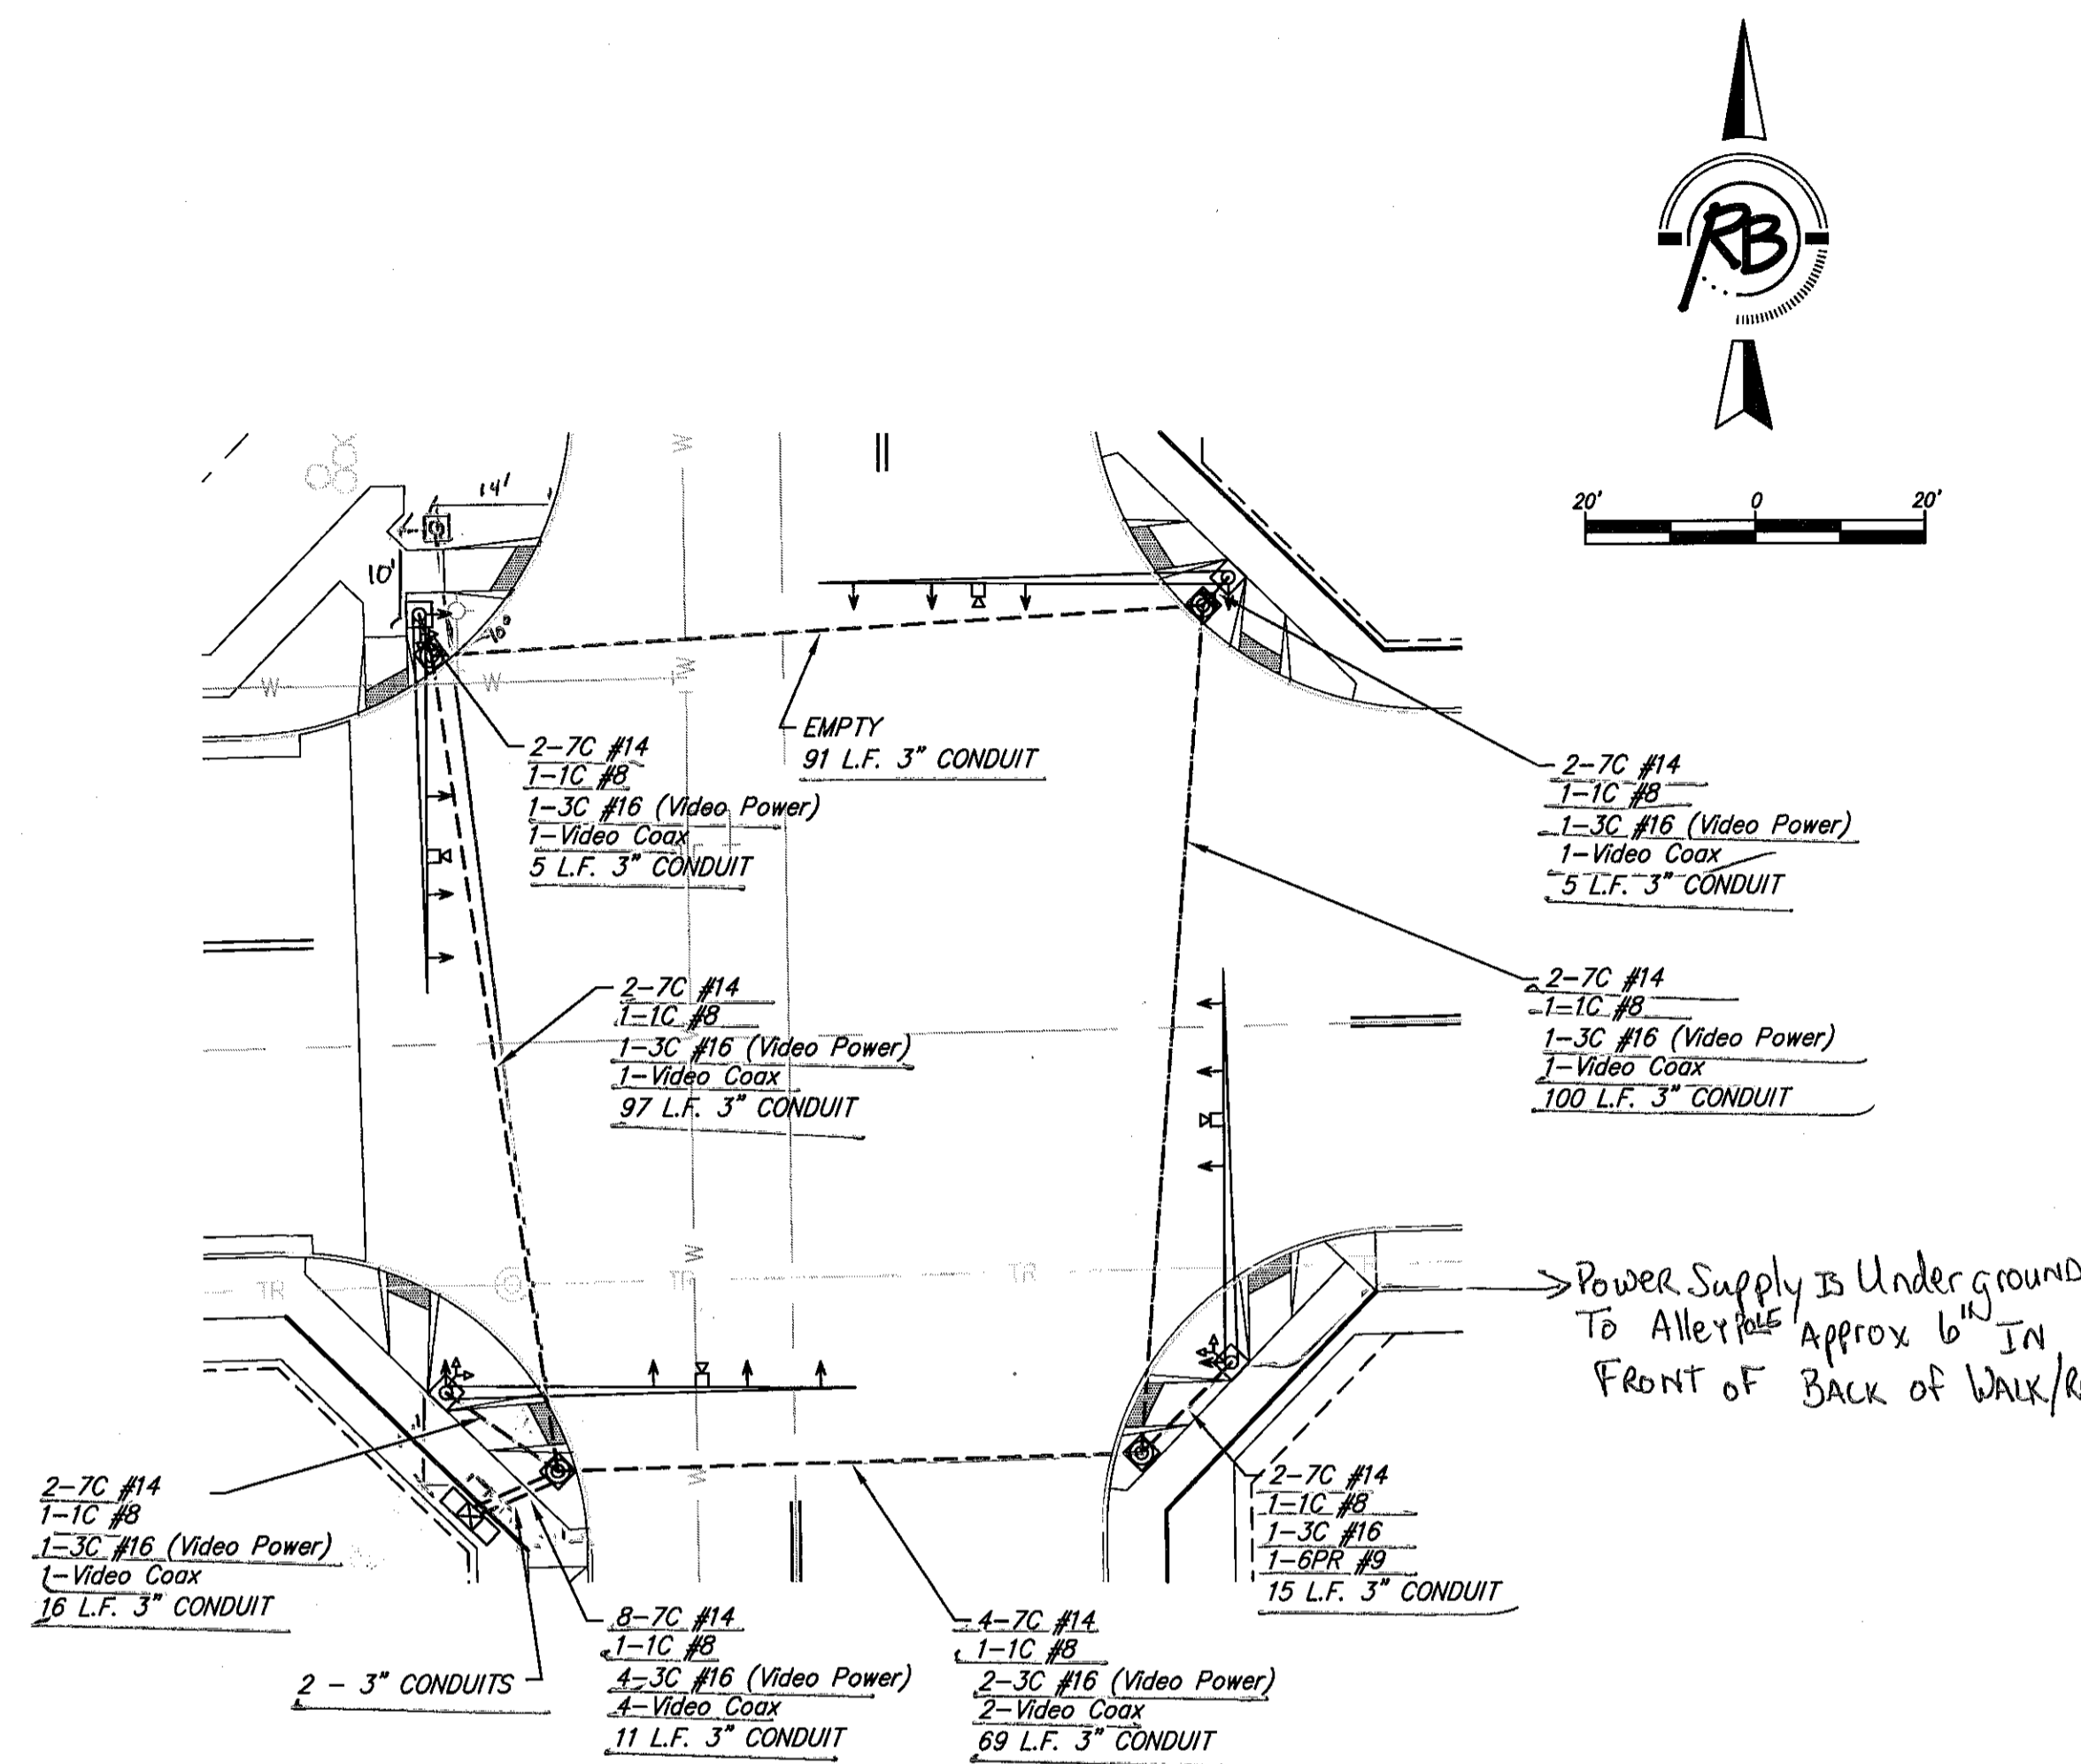 RB
20' 0 20'
14'
10'
10'
W
W
W
W
W
W
W
EMPTY
91 L.F. 3" CONDUIT
2-7C #14
1-1C #8
1-3C #16 (Video Power)
1-Video Coax
5 L.F. 3" CONDUIT
2-7C #14
1-1C #8
1-3C #16 (Video Power)
1-Video Coax
5 L.F. 3" CONDUIT
2-7C #14
1-1C #8
1-3C #16 (Video Power)
1-Video Coax
97 L.F. 3" CONDUIT
2-7C #14
1-1C #8
1-3C #16 (Video Power)
1-Video Coax
100 L.F. 3" CONDUIT
TR
TR
TR
Power Supply Is Underground
To Alley Pole Approx 6" IN
FRONT OF BACK OF WALK/R
2-7C #14
1-1C #8
1-3C #16 (Video Power)
1-Video Coax
16 L.F. 3" CONDUIT
2 - 3" CONDUITS
8-7C #14
1-1C #8
4-3C #16 (Video Power)
4-Video Coax
11 L.F. 3" CONDUIT
4-7C #14
1-1C #8
2-3C #16 (Video Power)
2-Video Coax
69 L.F. 3" CONDUIT
2-7C #14
1-1C #8
1-3C #16
1-6PR #9
15 L.F. 3" CONDUIT